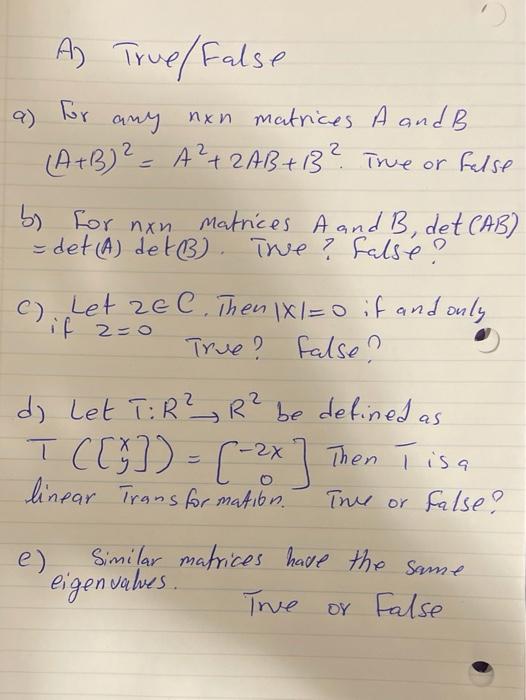 A) True/False
a) For any nxn matrices A and B
(A+B)² = A² + 2AB + B². True or False
b) For nxn Matrices A and B, det(AB)
= det(A) det(B). True? False?
c) Let z∈C. Then |X|=0 if and only
if z=0
True? False?
d) Let T:R²→R² be defined as
T([x y]) = [-2x 0] Then T is a
linear Transformation. True or False?
e) Similar matrices have the same
eigenvalues.
True or False